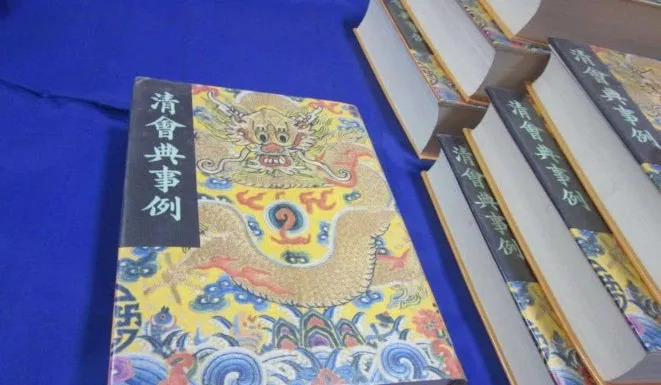 清會典事例
清會典事例
清會典事例
清會典事例